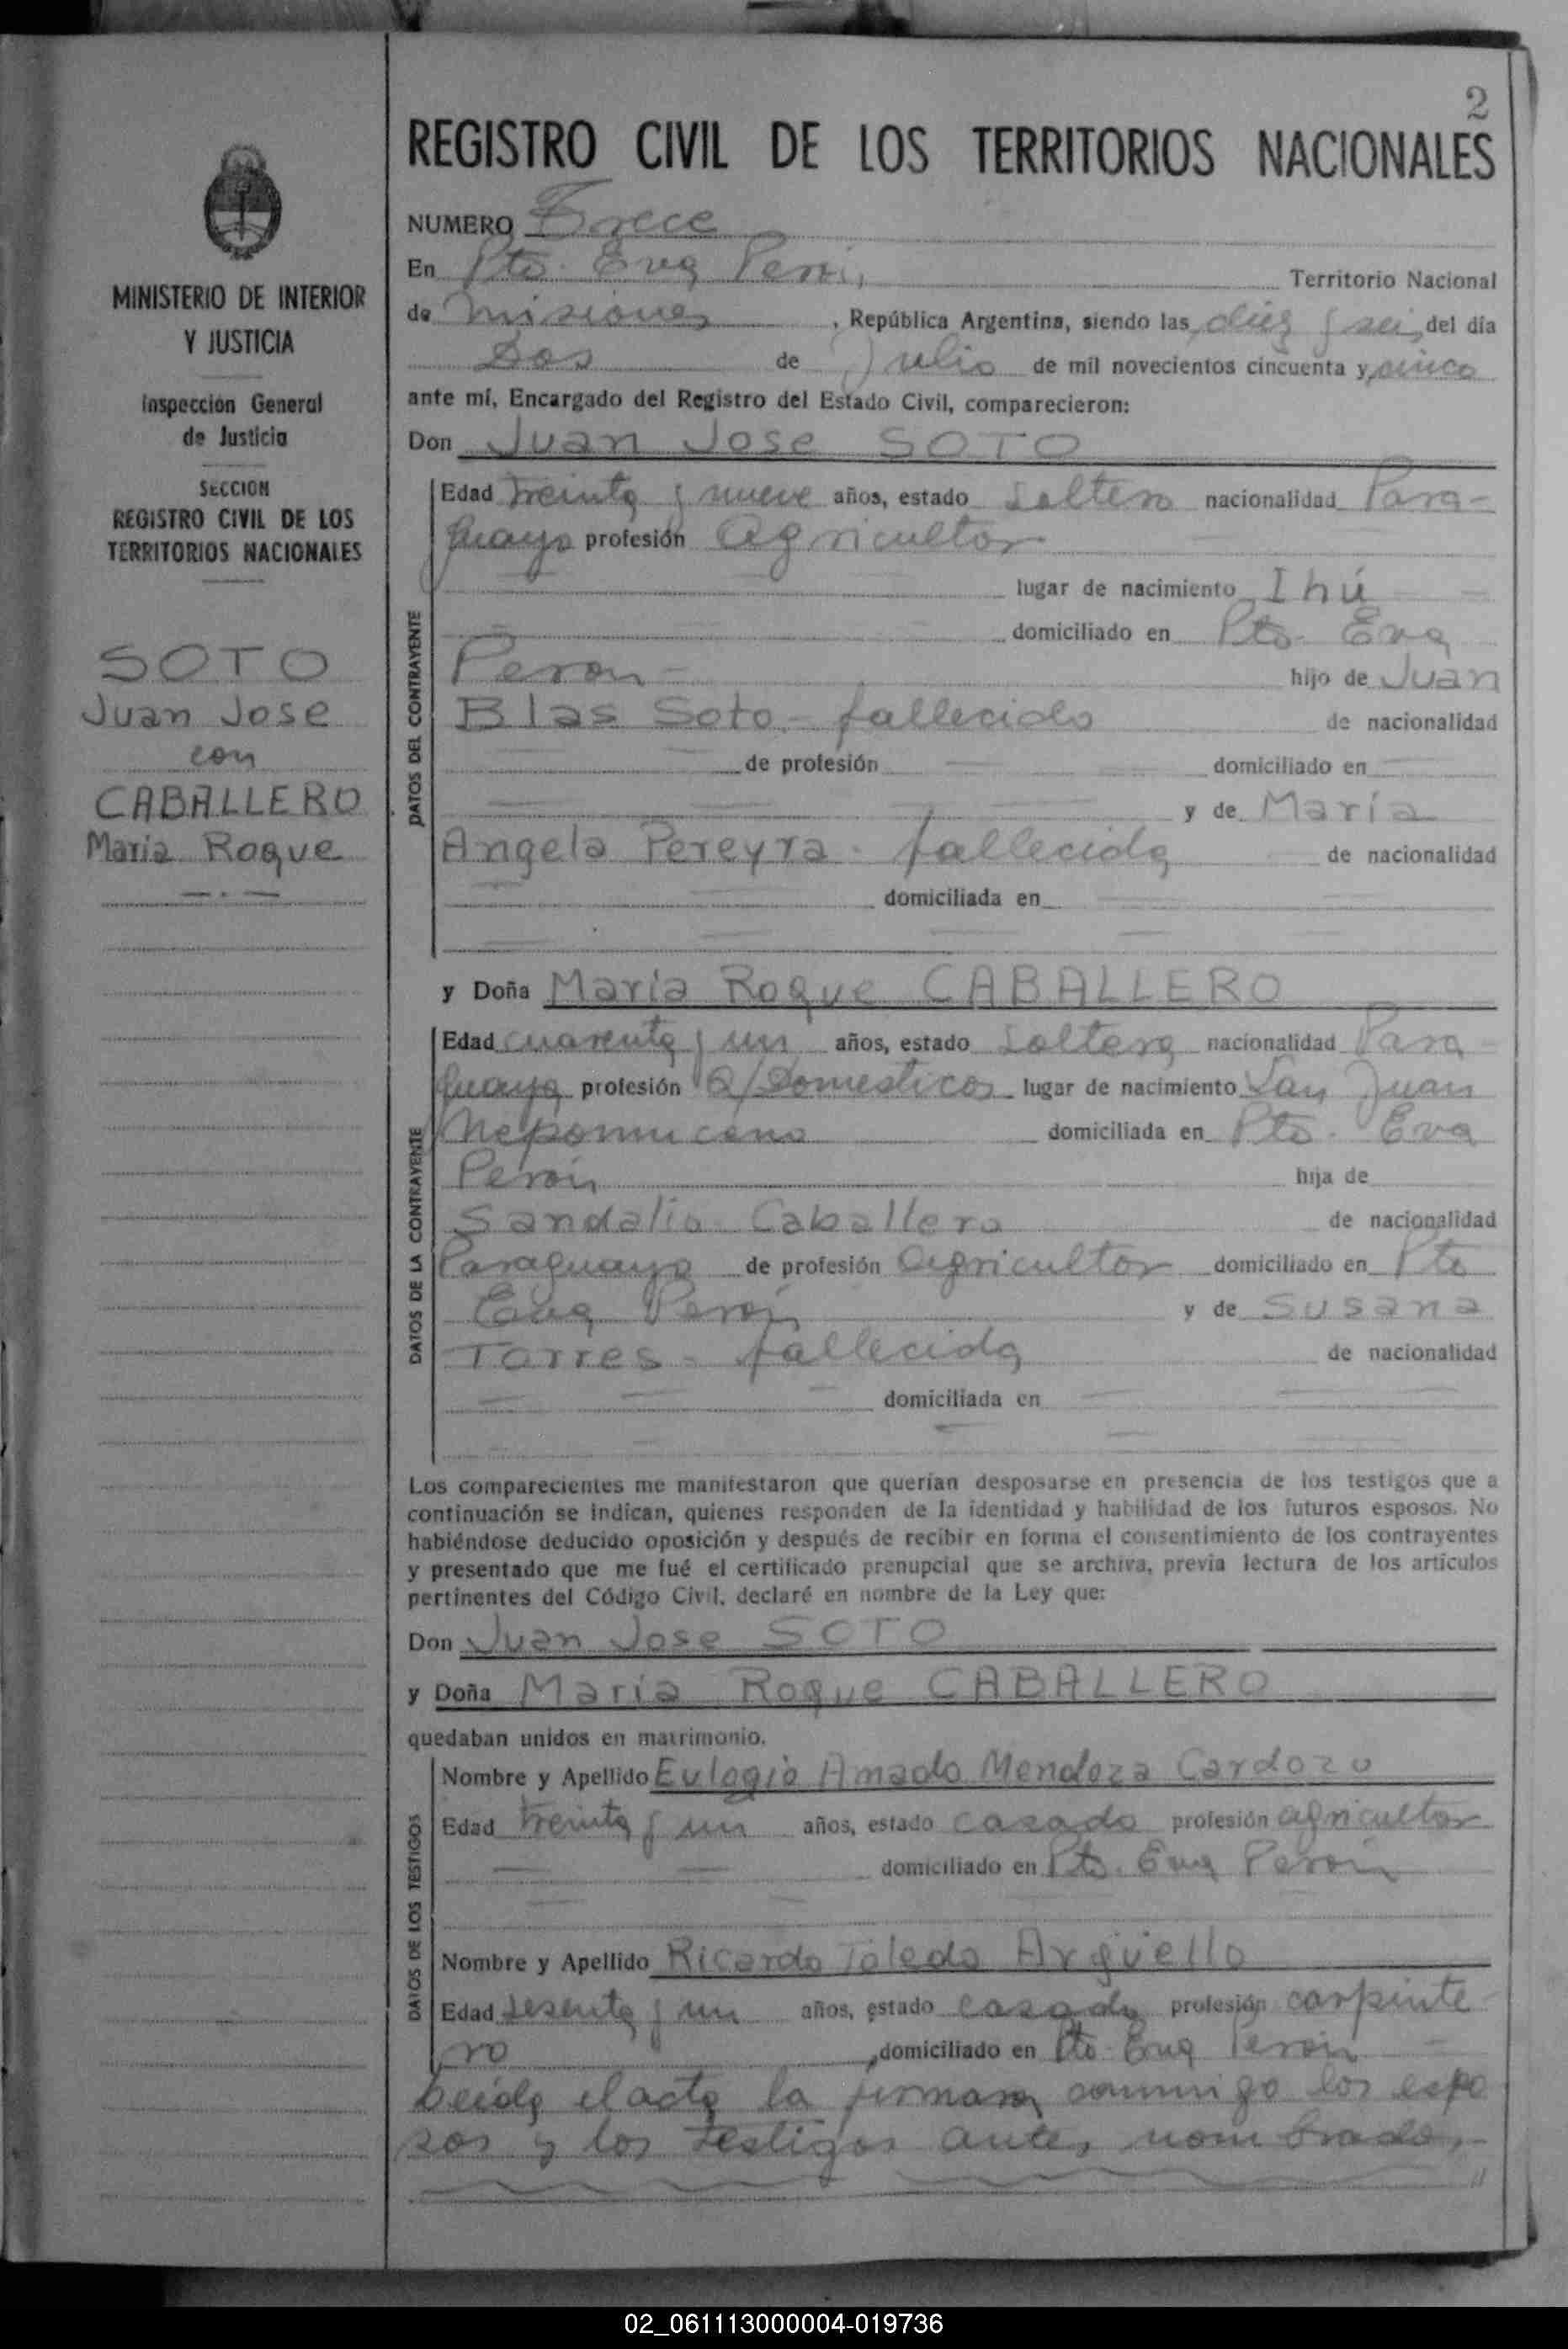 2
REGISTRO CIVIL DE LOS TERRITORIOS NACIONALES
MINISTERIO DE INTERIOR
Y JUSTICIA
Inspección General
de Justicia
SECCION
REGISTRO CIVIL DE LOS
TERRITORIOS NACIONALES
SOTO
Juan Jose
con
CABALLERO
Maria Roque
NUMERO Trece
En Pto. Eva Perón, Territorio Nacional
de Misiones, República Argentina, siendo las diez y seis del día
Dos de Julio de mil novecientos cincuenta y cinco
ante mí, Encargado del Registro del Estado Civil, comparecieron:
Don Juan Jose SOTO
DATOS DEL CONTRAYENTE
Edad treinta y nueve años, estado soltero nacionalidad Para-
guayo profesión agricultor
lugar de nacimiento Ihú
domiciliado en Pto. Eva
Peron - hijo de Juan
Blas Soto - fallecido de nacionalidad
de profesión domiciliado en
y de María
Angela Pereyra - fallecida de nacionalidad
domiciliada en
y Doña María Roque CABALLERO
DATOS DE LA CONTRAYENTE
Edad cuarenta y un años, estado soltera nacionalidad Para-
guaya profesión Q/Domesticos lugar de nacimiento San Juan
Nepomuceno domiciliada en Pto. Eva
Perón hija de
Sandalio Caballero de nacionalidad
Paraguayo de profesión agricultor domiciliado en Pto
Eva Perón y de Susana
Torres - fallecida de nacionalidad
domiciliada en
Los comparecientes me manifestaron que querían desposarse en presencia de los testigos que a
continuación se indican, quienes responden de la identidad y habilidad de los futuros esposos. No
habiéndose deducido oposición y después de recibir en forma el consentimiento de los contrayentes
y presentado que me fué el certificado prenupcial que se archiva, previa lectura de los artículos
pertinentes del Código Civil, declaré en nombre de la Ley que:
Don Juan Jose SOTO
y Doña María Roque CABALLERO
quedaban unidos en matrimonio.
DATOS DE LOS TESTIGOS
Nombre y Apellido Eulogio Amado Mendoza Cardozo
Edad treinta y un años, estado casado profesión agricultor
domiciliado en Pto. Eva Perón
Nombre y Apellido Ricardo Toledo Argüello
Edad sesenta y un años, estado casado profesión carpinte-
ro domiciliado en Pto. Eva Perón -
Leida el acta la firman conmigo los espo
sos y los testigos antes nombrados.-
02_061113000004-019736